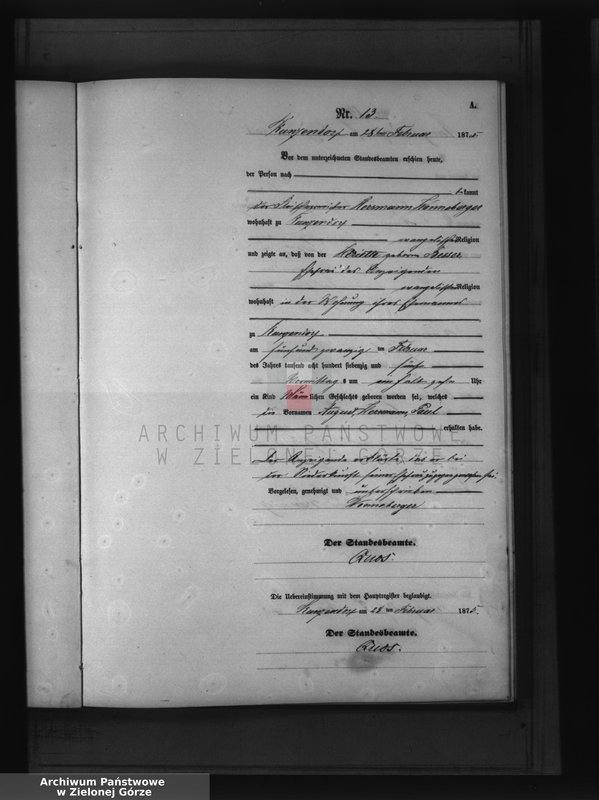 A.
Nr. 13.
Kunzendorf am 28ten Februar 1875.
Vor dem unterzeichneten Standesbeamten erschien heute,
der Person nach
kannt
der Herrmann Henneberger
wohnhaft zu Kunzendorf
evangelischer Religion
und zeigte an, daß von der geborne
Ehefrau des Anzeigenden
evangelischer Religion
wohnhaft in der Wohnung ihres Ehemannes
zu Kunzendorf
am fünfundzwanzig ten Februar
des Jahres tausend acht hundert siebenzig und fünf
Vormittag s um ein halb zehn Uhr
ein Kind männlichen Geschlechts geboren worden sei, welches
die Vornamen August, Herrmann, Paul
erhalten habe.
Der Anzeigende erklärte, daß er bei
der Niederkunft seiner Ehefrau zugegen gewesen sei.
Vorgelesen, genehmigt und unterschrieben
Henneberger
Der Standesbeamte.
Quos.
Die Uebereinstimmung mit dem Hauptregister beglaubigt.
Kunzendorf am 28 ten Februar 1875.
Der Standesbeamte.
Quos.
ARCHIWUM PAŃSTWOWE
W ZIELONEJ GÓRZE
Archiwum Państwowe
w Zielonej Górze